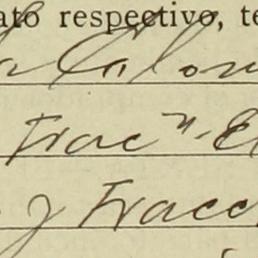 ato respectivo, te
la Colon
Fracⁿ. E
y Fracc